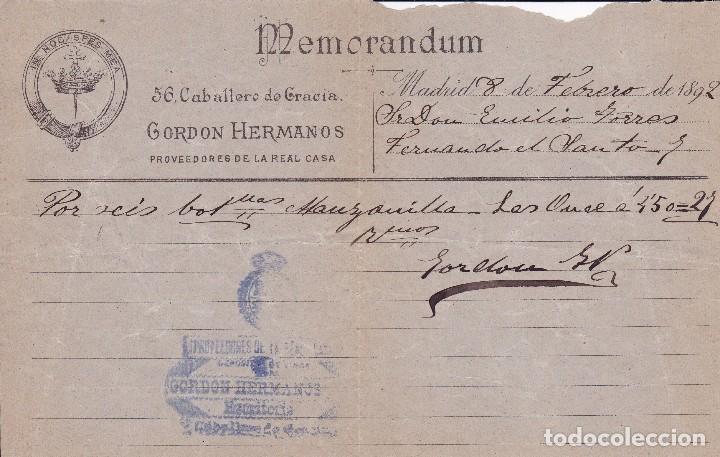 IN HOC SPES MEA
Memorandum
56, Caballero de Gracia.
GORDON HERMANOS
PROVEEDORES DE LA REAL CASA
Madrid 8 de Febrero de 1892
Sr Don Emilio Torres
Fernando el Santo
Por seis botllas Manzanilla Las Once á 4'50 = 27
Gordon
PROVEEDORES DE LA REAL CASA
GORDON HERMANOS
Escritorio
Caballero de Gracia
todocoleccion.net